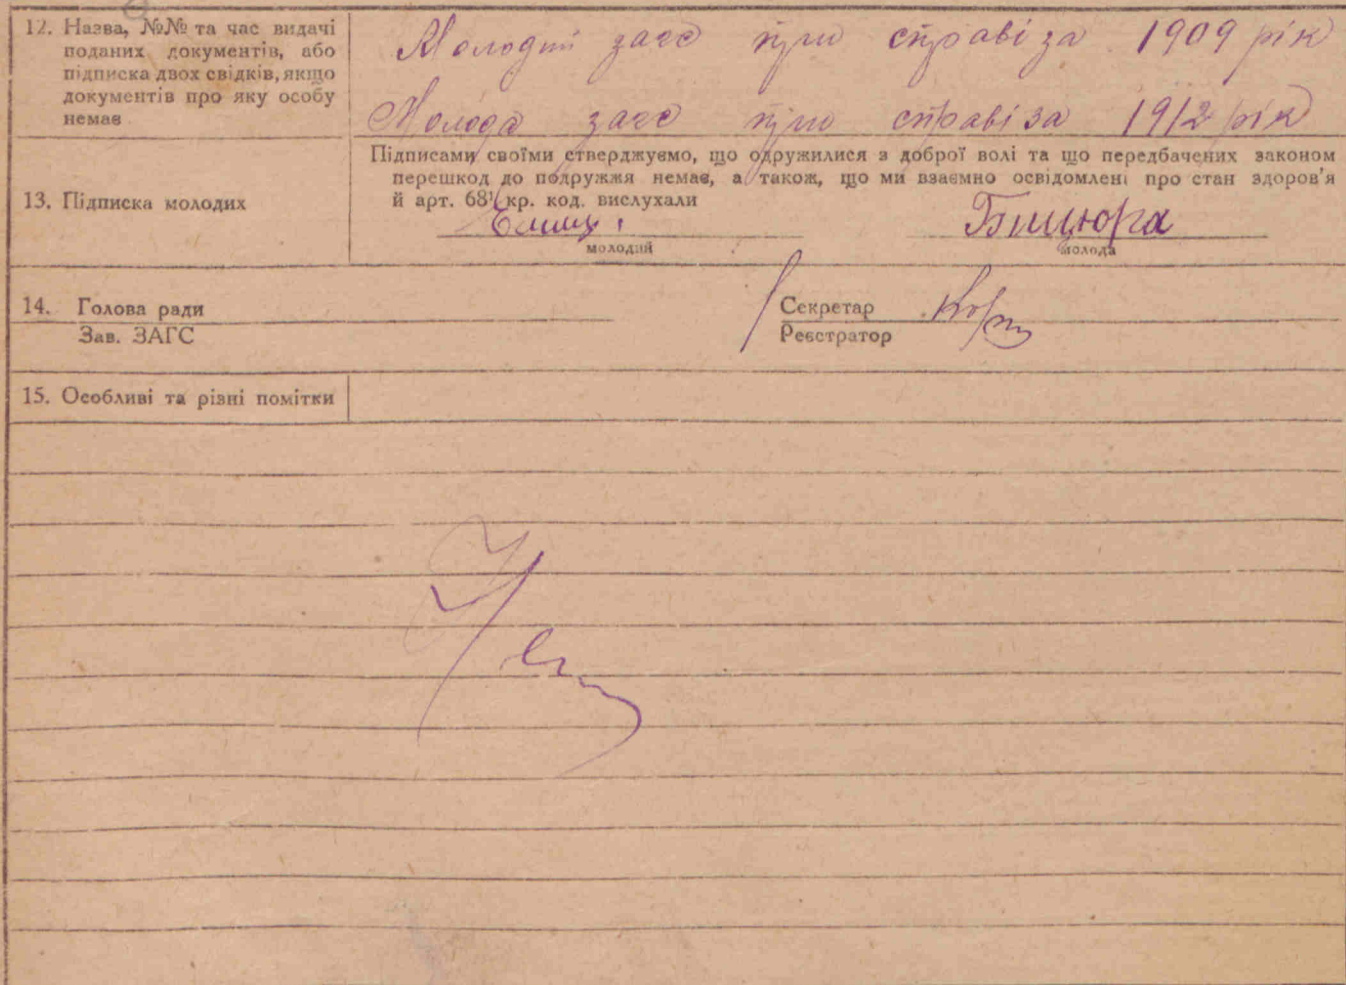 12. Назва, №№ та час видачі
поданих документів, або
підписка двох свідків, якщо
документів про яку особу
немає
Молодий загс при справі за 1909 рік
Молода загс при справі за 1912 рік
13. Підписка молодих
Підписами своїми стверджуємо, що одружилися з доброї волі та що передбачених законом
перешкод до подружжя немає, а також, що ми взаємно освідомлені про стан здоров'я
й арт. 68¹ кр. код. вислухали
Бицюра
молодий молода
14. Голова ради
Зав. ЗАГС
Секретар
Реєстратор
15. Особливі та різні помітки